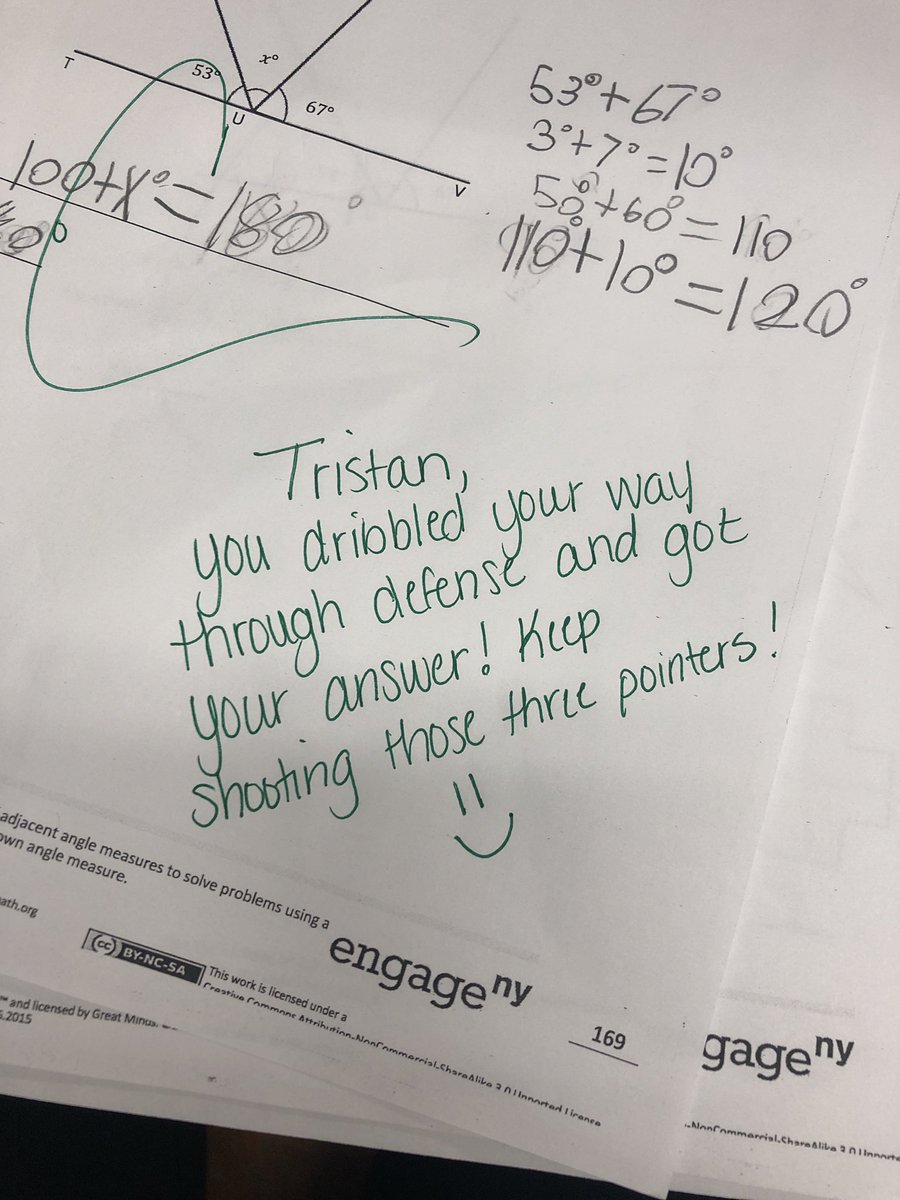 T
53°
x°
67°
U
V
53°+67°
3°+7°=10°
50°+60°=110
110°+10°=120°
100+x°=180°
Tristan,
you dribbled your way
through defense and got
your answer! Keep
shooting those three pointers!
adjacent angle measures to solve problems using a
own angle measure.
ath.org
engage ny
cc BY-NC-SA
This work is licensed under a
Creative Commons Attribution-NonCommercial-ShareAlike 3.0 Unported License
169
and licensed by Great Minds.
5.2015
gage ny
-NonCommercial-ShareAlike 3.0 Unporte